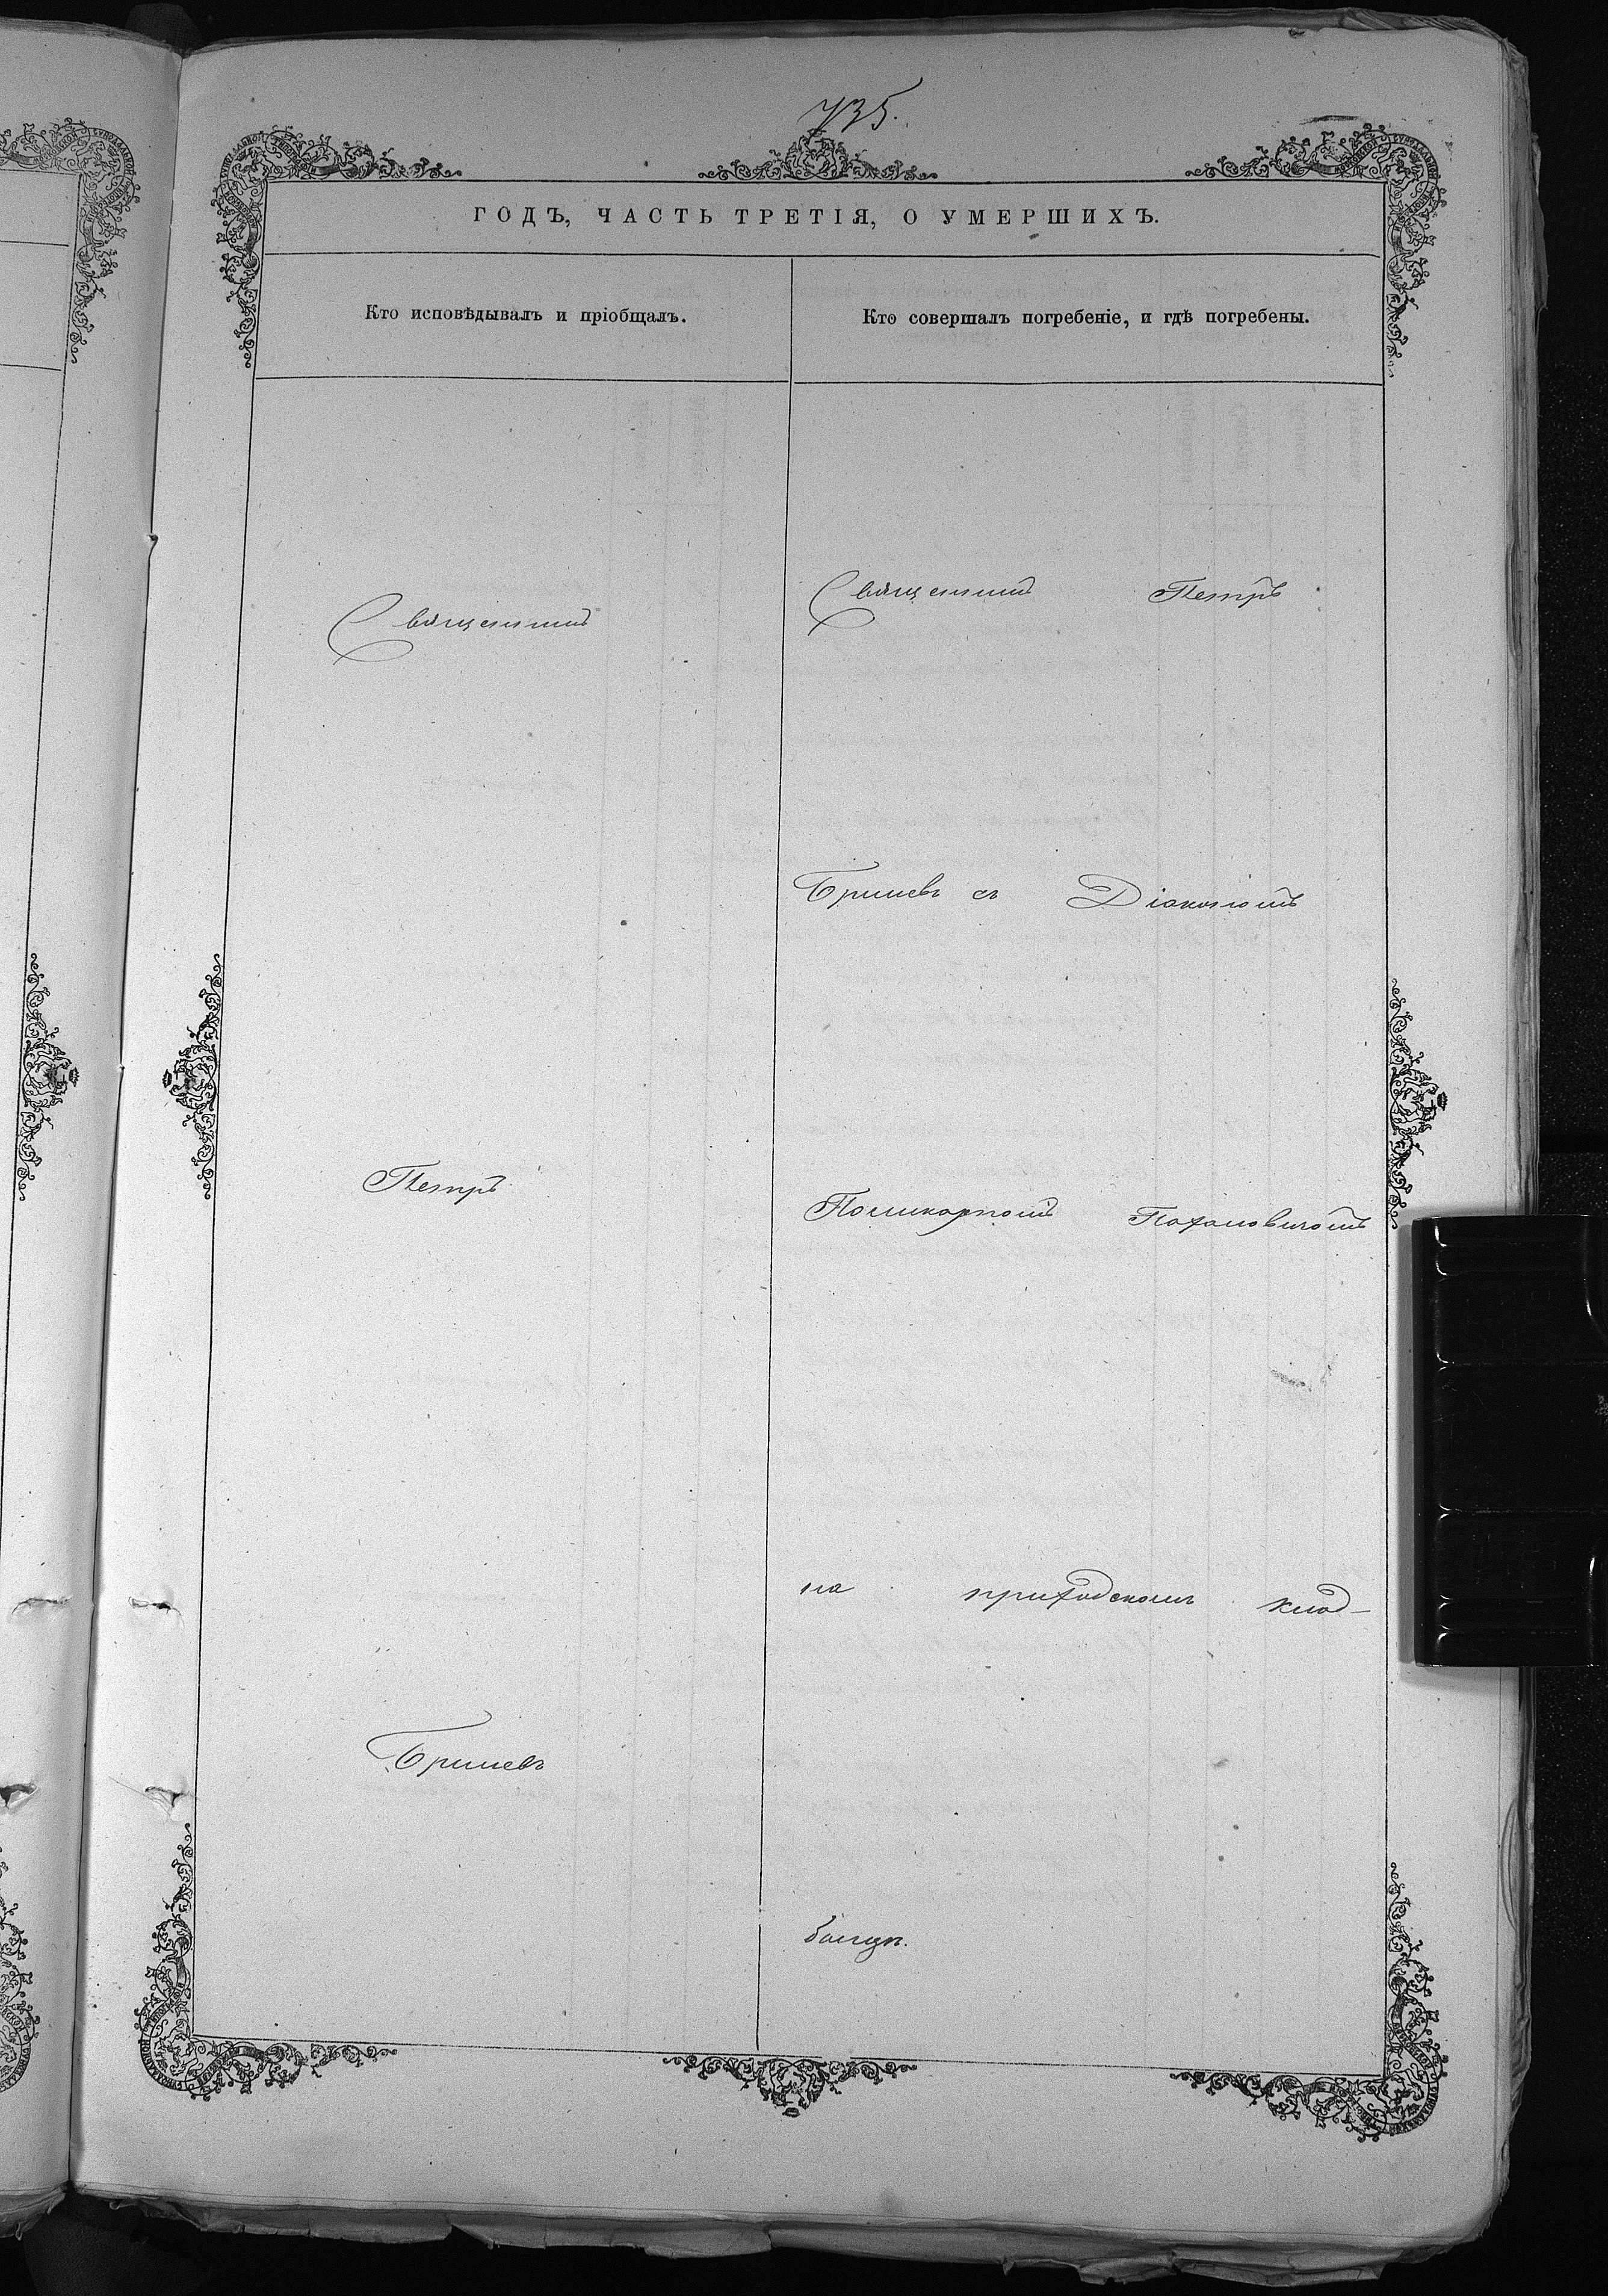 735.
ГОДЪ, ЧАСТЬ ТРЕТІЯ, О УМЕРШИХЪ.
Кто исповѣдывалъ и пріобщалъ.
Кто совершалъ погребеніе, и гдѣ погребены.
Священникъ
Петръ
Священникъ Петръ
съ Діакономъ
Поликарпомъ
на приходскомъ клад-
бищѣ.